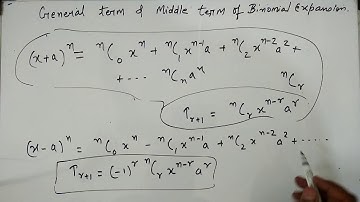 General term & Middle term of Binomial Expansion.
(x+a)ⁿ = ⁿC₀ xⁿ + ⁿC₁ xⁿ⁻¹a + ⁿC₂ xⁿ⁻²a² +
+ ··· ⁿCₙ aⁿ
ⁿCᵣ
Tᵣ₊₁ = ⁿCᵣ xⁿ⁻ʳ aʳ
(x-a)ⁿ = ⁿC₀ xⁿ - ⁿC₁ xⁿ⁻¹a + ⁿC₂ xⁿ⁻²a² + ·····
Tᵣ₊₁ = (-1)ʳ ⁿCᵣ xⁿ⁻ʳ aʳ